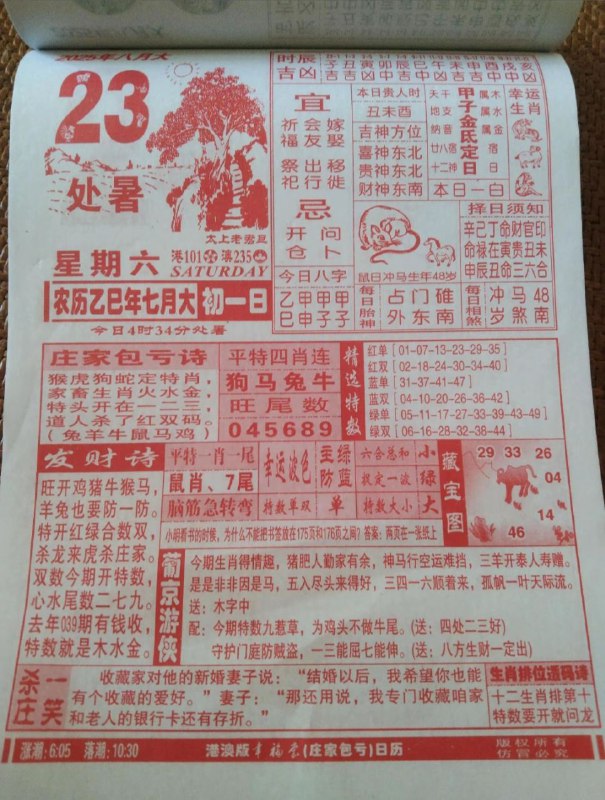 2025年八月大
23
处暑
太上老君曰
星期六
港101 澳235
SATURDAY
农历乙巳年七月大 初一日
今日4时34分处暑
时辰 子丑寅卯辰巳午未申酉戌亥
吉凶
宜
祈福 会友 嫁娶
祭祀 出行 移徙
忌
开仓 问卜
今日八字
乙巳 甲申 甲子 甲子
本日贵人时
丑未酉
吉神方位
喜神东北
贵神东北
财神东南
天干属木
地支属水
纳音属金
廿八宿
十二神
甲子金氐定日
本日一白
幸运生肖
鼠日冲马生年48岁
择日须知
辛己丁命财官印
命禄在寅贵丑未
申辰丑命三六合
每日胎神
占门碓
外东南
每日相煞
冲马48
岁煞南
庄家包亏诗
猴虎狗蛇定特肖，
家畜生肖火水金，
特头开在一二三，
道人杀了红双码。
（兔羊牛鼠马鸡）
平特四肖连
狗马兔牛
旺尾数
045689
精选特数
红单［01-07-13-23-29-35］
红双［02-18-24-30-34-40］
蓝单［31-37-41-47］
蓝双［04-10-20-26-36-42］
绿单［05-11-17-27-33-39-43-49］
绿双［06-16-28-32-38-44］
发财诗
旺开鸡猪牛猴马，
羊兔也要防一防。
特开红绿合数双，
杀龙来虎杀庄家。
双数今期开特数，
心水尾数二七九。
去年039期有钱收，
特数就是木水金。
平特一肖一尾
鼠肖、7尾
幸运波色
主绿
防蓝
六合总和 小
投定一波 绿
脑筋急转弯
特数单双 单
特数大小 大
小明看书的时候，为什么不能把书签放在175页和176页之间？答案：两页在一张纸上
藏宝图
29 33 26
04
14
46
葡京游侠
今期生肖得情趣，猪肥人勤家有余，神马行空运难挡，三羊开泰人寿赠。
是是非非因是马，五入尽头来得好，三四一六顺着来，孤帆一叶天际流。
送：木字中
配：今期特数九惹草，为鸡头不做牛尾。（送：四处二三好）
守护门庭防贼盗，一三能屈七能伸。（送：八方生财一定出）
杀庄一笑
收藏家对他的新婚妻子说：“结婚以后，我希望你也能
有个收藏的爱好。”妻子：“那还用说，我专门收藏咱家
和老人的银行卡还有存折。”
生肖排位送码诗
十二生肖排第十
特数要开就问龙
涨潮：6:05 落潮：10:30
港澳版幸福堂（庄家包亏）日历
版权所有
仿冒必究